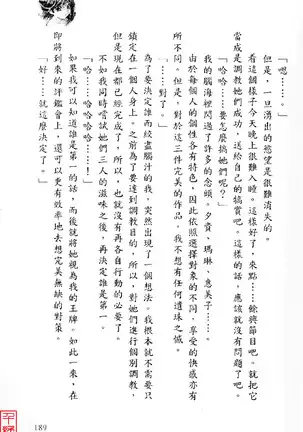 「嗯……。」
但是，一旦湧出的慾望是很難消失的。
看這個樣子今天晚上很難入睡。這樣好了，來點……餘興節目吧。就把它
當成是調教她們成功，送給自己的犒賞吧。這樣的話，應該就沒有問題了吧。
「哈哈……要怎麼搞她們呢？」
我的腦海裡閃過了許多的念頭。夕貴、瑪琳、惠美子……。
由於每個人的個性各有特色，因此依照選擇對象的不同，享受的快感亦有
所不同。但是，對於這三件完美的作品，我不想有任何遺珠之憾。
「……對了。」
為了要決定誰而絞盡腦汁的我，突然出現了一個想法。我根本就不需要只
鎖定在一個人身上。之前為了要達到調教目的，所以，對她們進行個別調教，
但是現在都已經完成了，所以，也就沒有再各自行動的必要了。
不如我同時嘗試她們三人的滋味之後，再決定誰是第一。
「哈……哈哈哈哈……！」
如果我可以知道誰是第一的話，而後就將她視為我的王牌。如此一來，在
即將到來的評鑑會上，還可以更有效率地去想完美無缺的對策。
「好……就這麼決定了。」
189